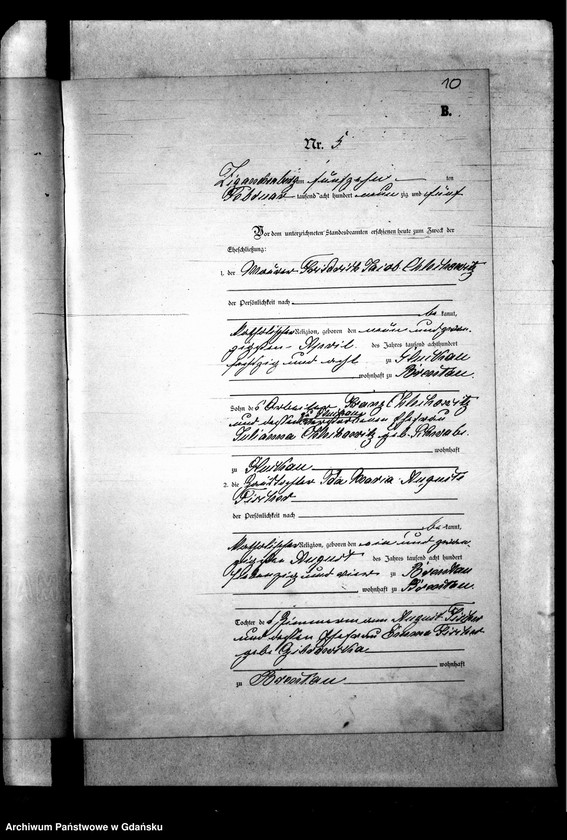 10
B.
Nr. 5
Zigankenberg am fünfzehn ten
Februar tausend acht hundert neunzig und fünf
Vor dem unterzeichneten Standesbeamten erschienen heute zum Zweck der
Eheschließung:
1. der Maurer Friedrich Jacob
der Persönlichkeit nach
be kannt,
katholischer Religion, geboren den neun und zwan-
zigsten April des Jahres tausend achthundert
sechszig und acht zu
wohnhaft zu Brentau.
Sohn des Arbeiter Franz
und dessen Ehefrau
Julianna geb. Schwabe
wohnhaft
zu
2. die Haustochter Ida Maria Auguste
Fischer
der Persönlichkeit nach
be kannt,
katholischer Religion, geboren den ein und zwan-
zigsten August des Jahres tausend acht hundert
siebenzig und vier zu Brentau
wohnhaft zu Brentau.
Tochter des Zimmermann August Fischer
und dessen Ehefrau Emma Fischer
geb.
wohnhaft
zu Brentau
Archiwum Państwowe w Gdańsku